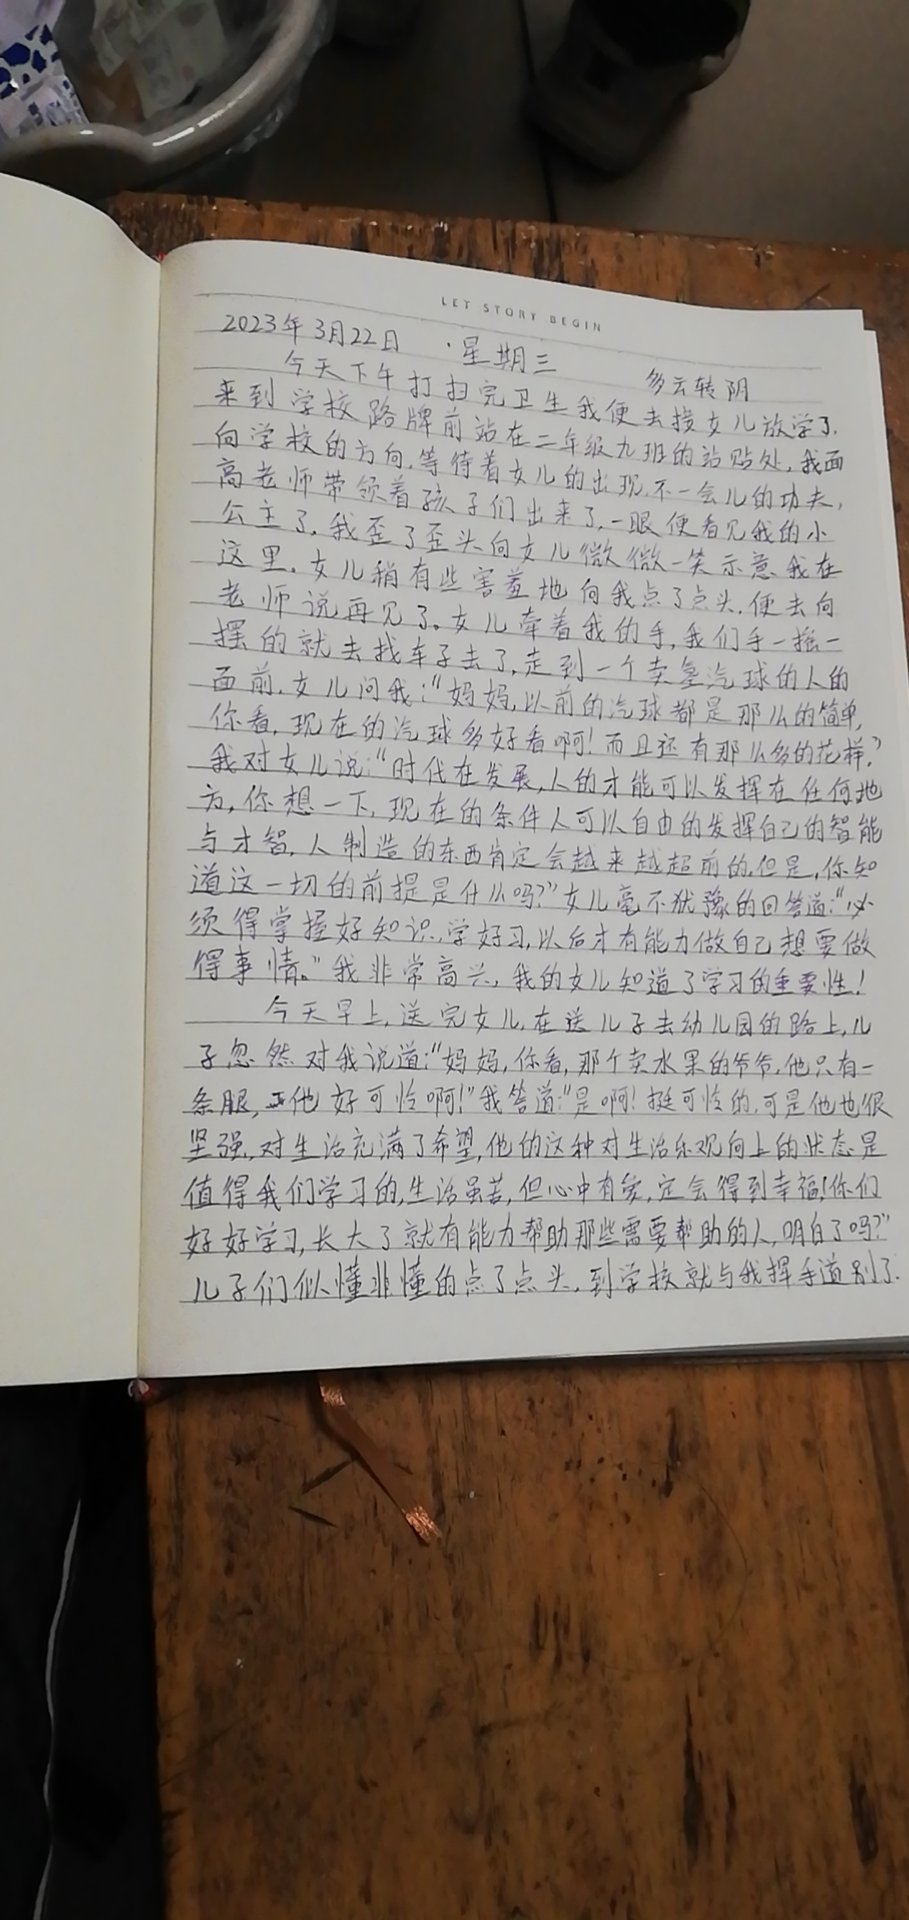 LET STORY BEGIN
2023年3月22日 ·星期三 多云转阴
今天下午打扫完卫生我便去接女儿放学了.
来到学校路牌前站在二年级九班的站贴处,我面
向学校的方向,等待着女儿的出现,不一会儿的功夫,
高老师带领着孩子们出来了,一眼便看见我的小
公主了,我歪了歪头向女儿微微一笑示意我在
这里。女儿稍有些害羞地向我点了点头,便去向
老师说再见了。女儿牵着我的手,我们手一摇一
摆的就去找车子去了,走到一个卖氢汽球的人的
面前,女儿问我:“妈妈,以前的汽球都是那么的简单,
你看,现在的汽球多好看啊!而且还有那么多的花样,”
我对女儿说:“时代在发展,人的才能可以发挥在任何地
方,你想一下,现在的条件人可以自由的发挥自己的智能
与才智,人制造的东西肯定会越来越超前的,但是,你知
道这一切的前提是什么吗?”女儿毫不犹豫的回答道:“必
须得掌握好知识,学好习,以后才有能力做自己想要做
得事情。”我非常高兴,我的女儿知道了学习的重要性!
今天早上,送完女儿,在送儿子去幼儿园的路上,儿
子忽然对我说道:“妈妈,你看,那个卖水果的爷爷,他只有一
条服,他好可怜啊!”我答道:“是啊!挺可怜的,可是他也很
坚强,对生活充满了希望,他的这种对生活乐观向上的状态是
值得我们学习的,生活虽苦,但心中有爱,定会得到幸福!你们
好好学习,长大了就有能力帮助那些需要帮助的人,明白了吗?”
儿子们似懂非懂的点了点头,到学校就与我挥手道别了.